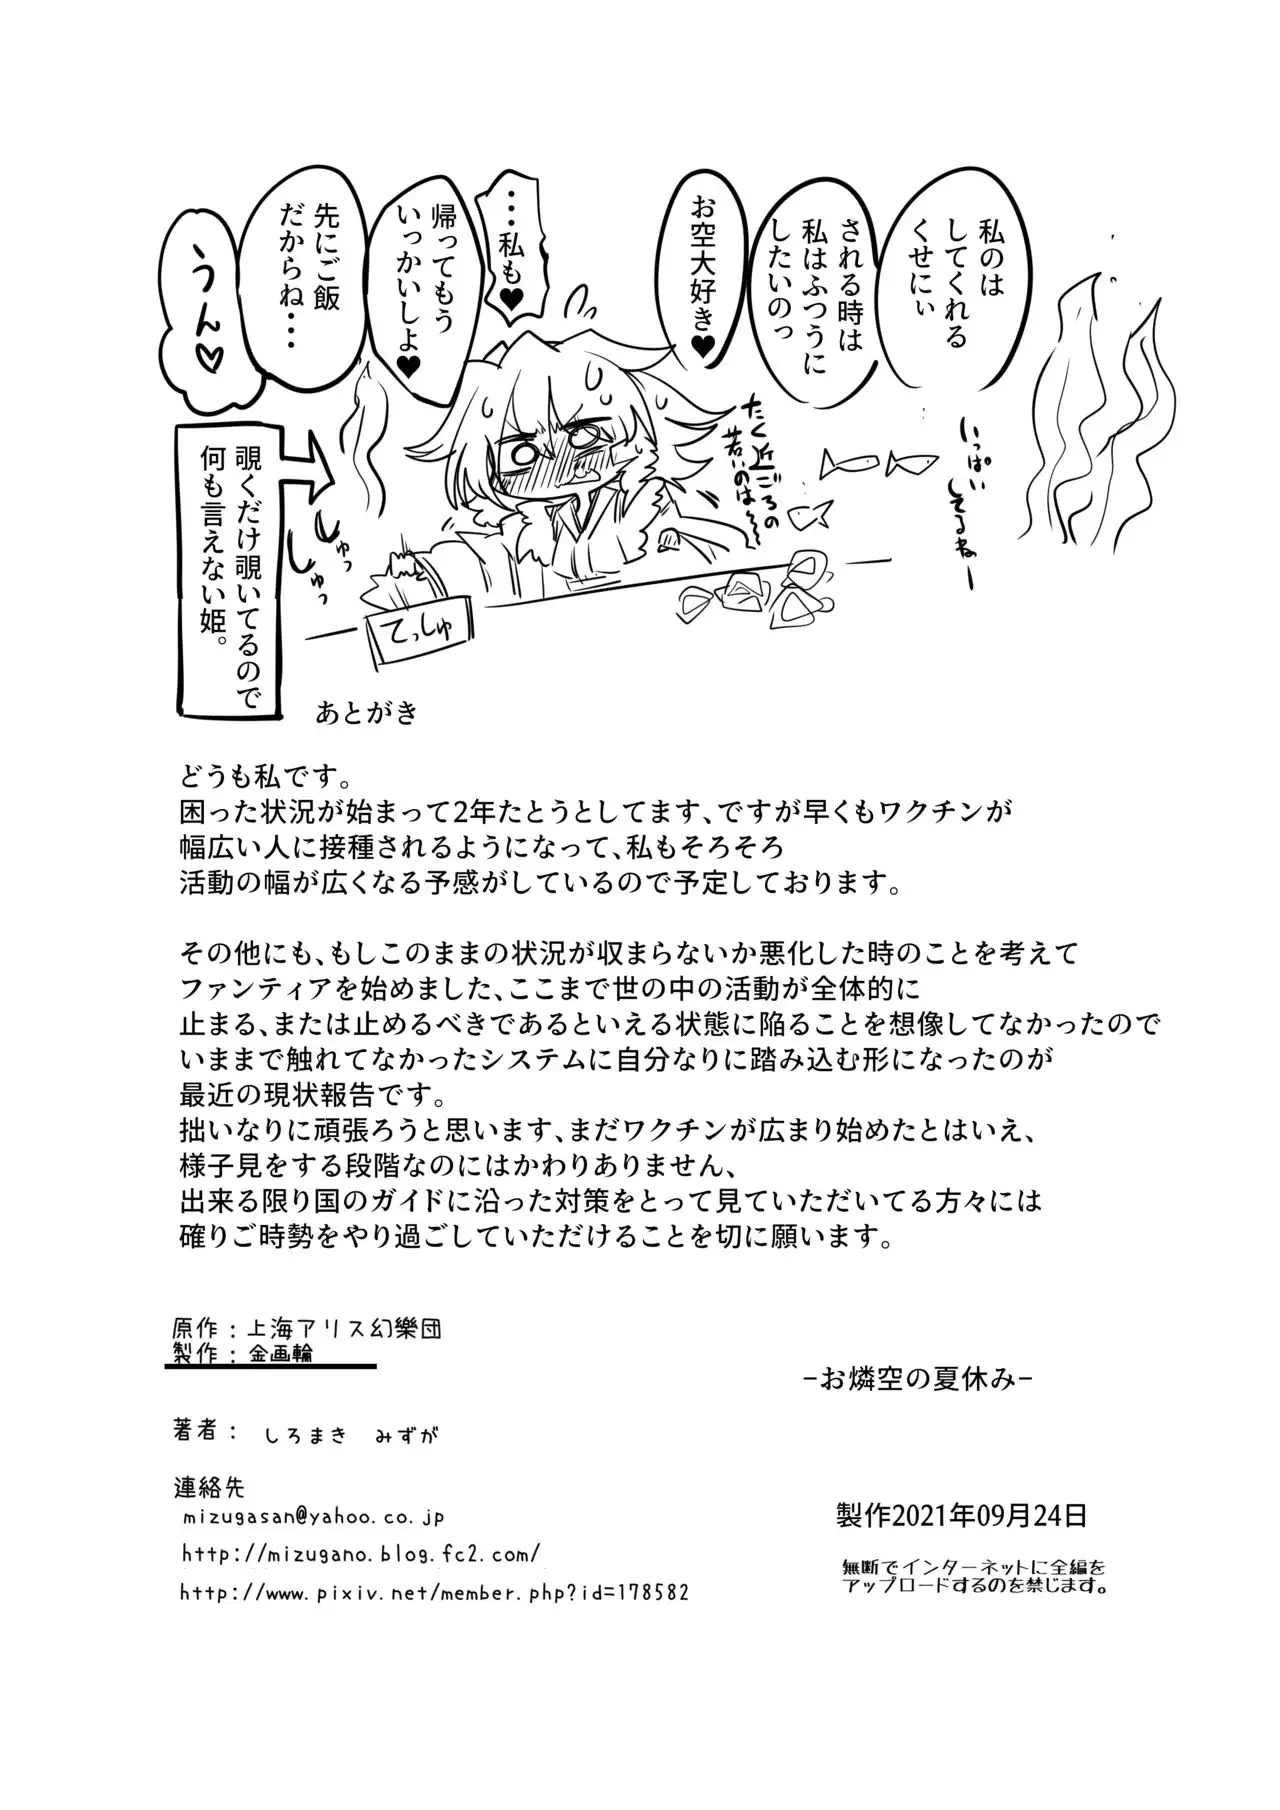 私のは
してくれる
くせにぃ
される時は
私はふつうに
したいのっ
お空大好き♥
…私も♥
帰ってもう
いっかいしよ♥
先にご飯
だからね…
うん♡
覗くだけ覗いてるので
何も言えない姫。
いっぱい
してるねー
たく近ごろの
若いのは〜
しゅっ
しゅっ
てっしゅ
あとがき
どうも私です。
困った状況が始まって2年たとうとしてます、ですが早くもワクチンが
幅広い人に接種されるようになって、私もそろそろ
活動の幅が広くなる予感がしているので予定しております。
その他にも、もしこのままの状況が収まらないか悪化した時のことを考えて
ファンティアを始めました、ここまで世の中の活動が全体的に
止まる、または止めるべきであるといえる状態に陥ることを想像してなかったので
いままで触れてなかったシステムに自分なりに踏み込む形になったのが
最近の現状報告です。
拙いなりに頑張ろうと思います、まだワクチンが広まり始めたとはいえ、
様子見をする段階なのにはかわりありません、
出来る限り国のガイドに沿った対策をとって見ていただいてる方々には
確りご時勢をやり過ごしていただけることを切に願います。
原作：上海アリス幻樂団
製作：金画輪
-お燐空の夏休み-
著者： しろまき みずが
連絡先
mizugasan@yahoo.co.jp
http://mizugano.blog.fc2.com/
http://www.pixiv.net/member.php?id=178582
製作2021年09月24日
無断でインターネットに全編を
アップロードするのを禁じます。